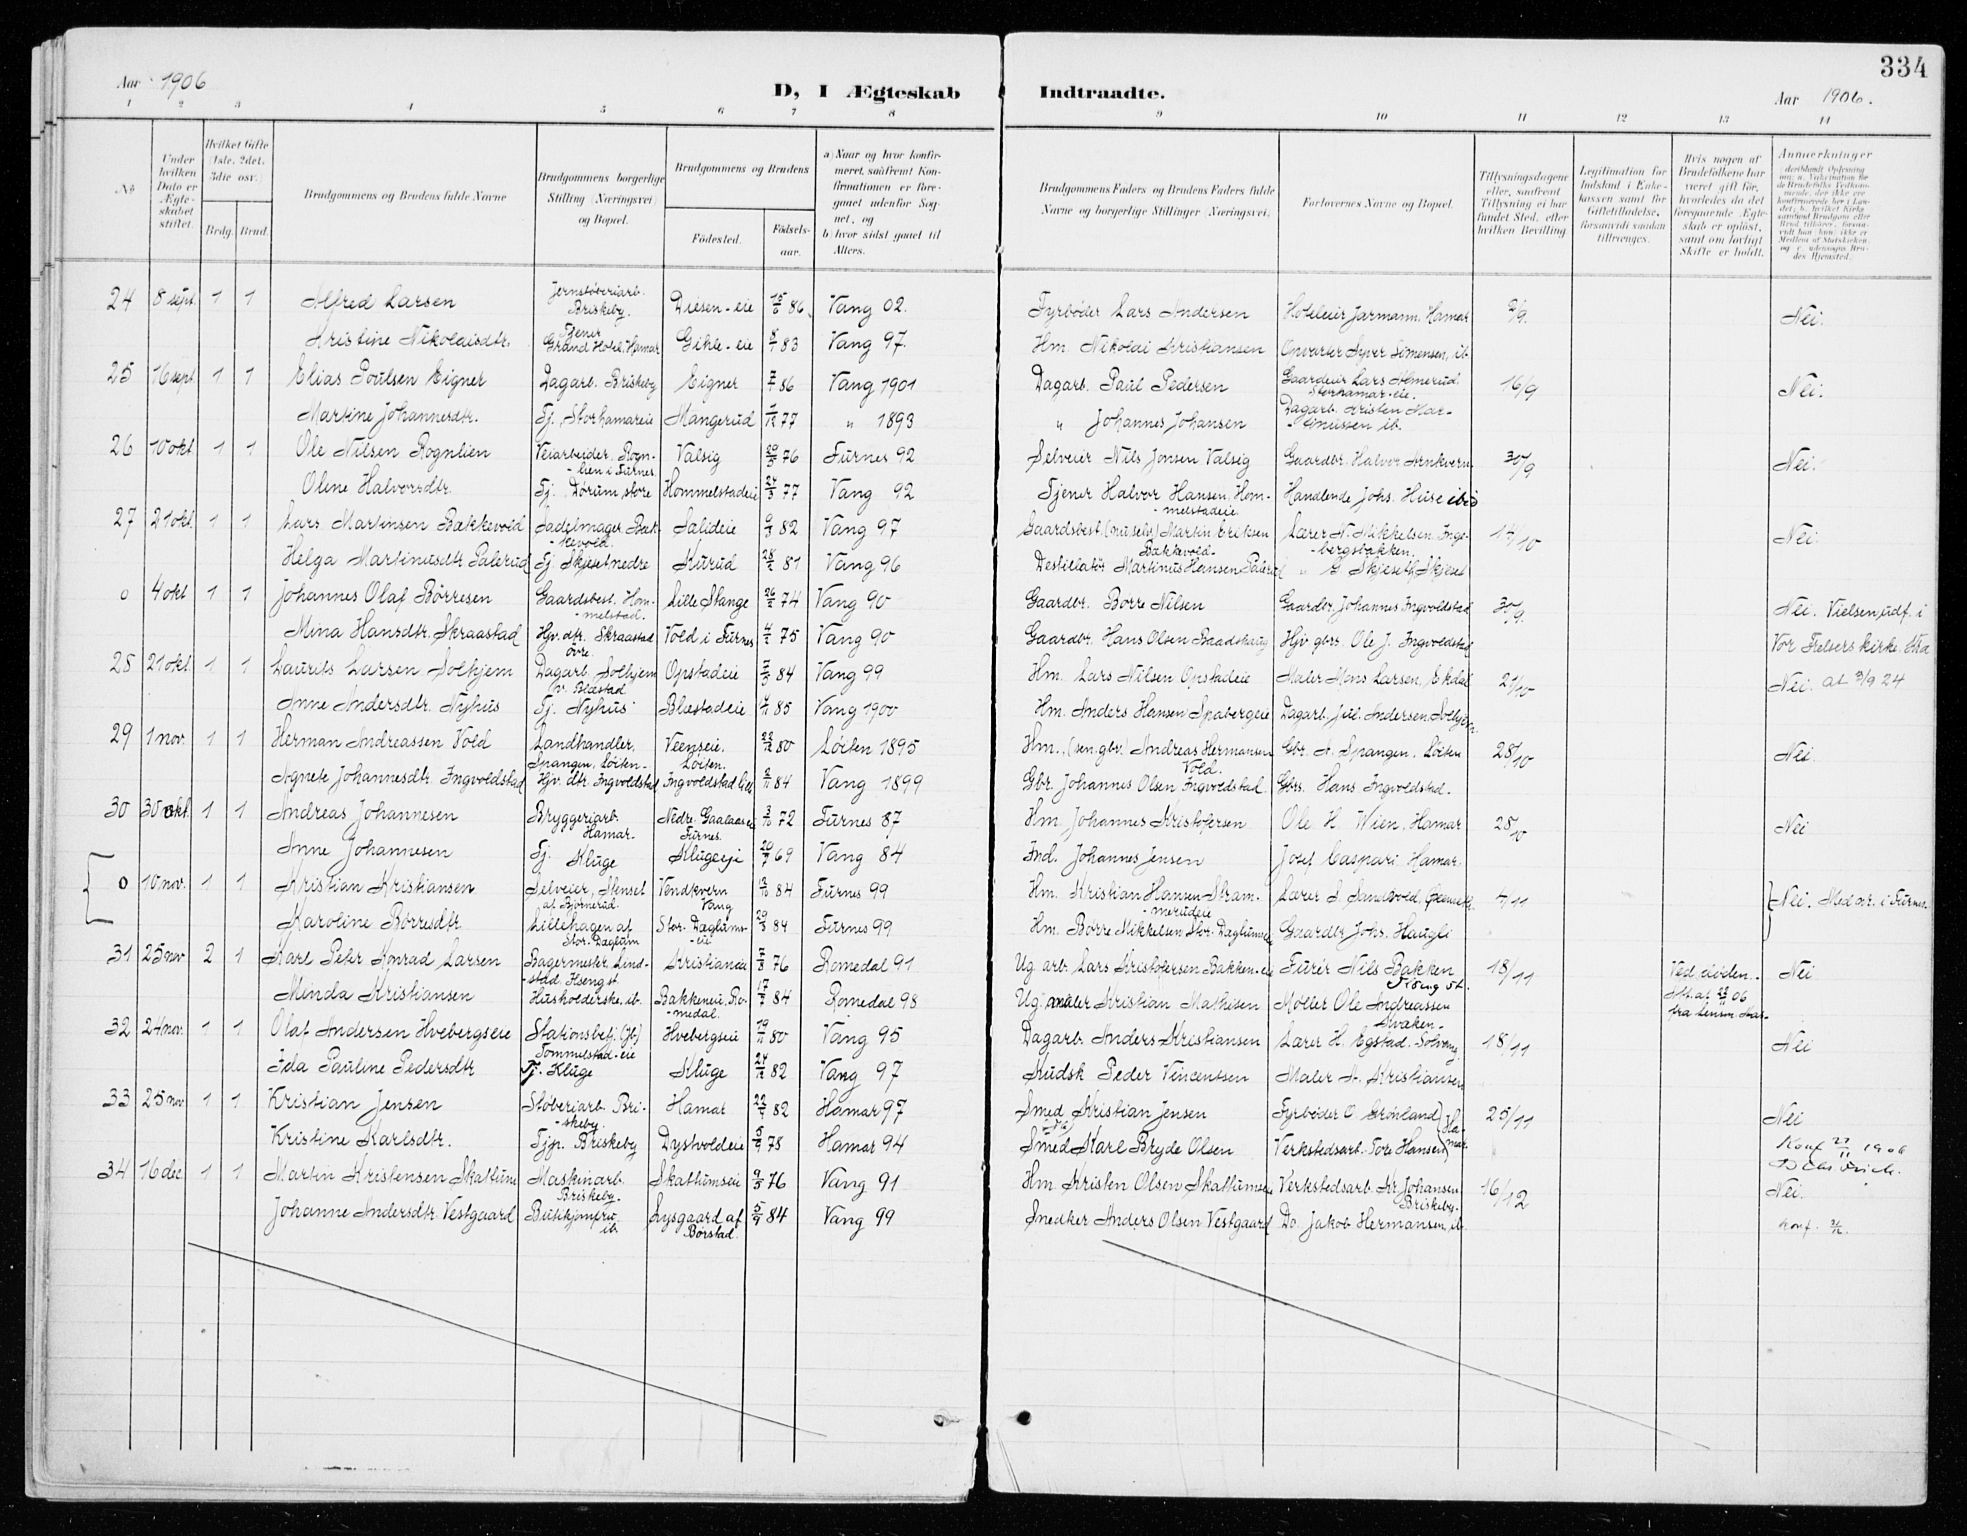 334
Aar 1906
D, I Ægteskab Indtraadte.
Aar 1906.
1 2 3 4 5 6 7 8 9 10 11 12 13 14
No
Under hvilken Dato er Ægteskabet stiftet.
Hvilket Gifte (1ste, 2det, 3die osv.)
Brdg. Brud.
Brudgommens og Brudens fulde Navne
Brudgommens borgerlige Stilling (Næringsvei) og Bopæl.
Brudgommens og Brudens
Fødested. Fødselsaar.
a) Naar og hvor konfirmeret, saafremt Konfirmationen er foregaaet udenfor Sognet, og
b) hvor sidst gaaet til Alters.
Brudgommens Faders og Brudens Faders fulde Navne og borgerlige Stillinger (Næringsvei).
Forlovernes Navne og Bopæl.
Tillysningsdagene eller, saafremt Tillysning ei har fundet Sted, efter hvilken Bevilling
Legitimation for Indskud i Enkekassen samt for Giftetilladelse, forsaavidt saadan tiltrænges.
Hvis nogen af Brudefolkene har været gift før, hvorledes da det foregaaende Ægteskab er opløst, samt om lovligt Skifte er holdt.
Anmerkninger
24 8 sept. 1 1 Alfred Larsen Jernstøberiarb. Briskeby. Diesen-eie 15/6 86 Vang 02. Fyrbøder Lars Andersen Hoteleier Jarmann, Hamar 2/9. Nei.
Kristine Nikolaisdtr. Tjener Grand Hotel, Hamar Gihle-eie 8/1 83 Vang 97. Hm. Nikolai Kristiansen Opvarter Syver Simensen, ib.
25 16 sept. 1 1 Elias Poulsen Eigner Dagarb. Briskeby Eigner 7/7 86 Vang 1901 Dagarb. Paul Pedersen Gaardeier Lars Almerud. Storhamar-eie. 16/9 Nei.
Martine Johannesdtr. Tj. Storhamareie Mangerud 1/12 77 " 1893 " Johannes Johansen Dagarb. Kristen Martinussen ib.
26 10 okt 1 1 Ole Nilsen Rognlien Veiarbeider, Rognlien i Furnes. Valsig 20/3 76 Furnes 92 Selveier Nils Jonsen Valsig Gaardbr. Halvor Arnkvern 30/9 Nei.
Oline Halvorsdtr. Tj. Dørum, store Hommelstadeie 24/3 77 Vang 92 Tjener Halvor Hansen, Hommelstadeie. Handlende Johs. Huse ibid
27 21 okt 1 1 Lars Martinsen Bækkevold Sadelmager Bækkevold. Salideie 9/3 82 Vang 97 Gaardsbest. (nu selv.) Martin Eriksen Bækkevold- Lærer N. Mikkelsen, Ingebergsbakken. 14/10 Nei.
Helga Martinusdtr Palerud Tj. Skjeset nedre Kurud 28/2 81 Vang 96 Destillatør Martinus Hansen Palerud " G. Skjeseth, Skjeset
0 4 okt 1 1 Johannes Olaf Børresen Gaardsbest. Hommelstad. Lille Stange 26/2 74 Vang 90 Gaardbr. Børre Nilsen Gaardbr. Johannes Ingvoldstad 30/9. Nei. Vielsen udf. i
Mina Hansdtr. Skraastad Hjv. dtr. Skraastad övre. Vold i Furnes 4/2 75 Vang 90 Gaardbr. Hans Olsen Baadshaug Hjv gbr. Ole J. Ingvoldstad Vor Frelsers kirke. Kra
28 21 okt 1 1 Laurits Larsen Solhjem Dagarb. Solhjem v. Blæstad Opstadeie 7/3 84 Vang 99 Hm. Lars Nilsen Opstadeie Maler Mons Larsen, Ekdal 21/10 Nei.
Anne Andersdtr. Nyhus Tj. Nyhus Blæstadeie 4/11 85 Vang 1900 Hm. Anders Hansen Spabergeie Dagarb. Jul. Andersen, Solhjem.
29 1 nov. 1 1 Herman Andreassen Vold Landhandler, Spangen, Løiten- Veenseie. Løiten. 22/12 80 Løiten 1895 Hm. (sen. gbr.) Andreas Hermansen Vold. Gbr. A. Spangen, Løiten 28/10 Nei.
Agnete Johannesdtr. Ingvoldstad Hjv. dtr. Ingvoldstad Ingvoldstad lille 2/11 84 Vang 1899 Gbr. Johannes Olsen Ingvoldstad. Gbrs. Hans Ingvoldstad.
30 30 okt. 1 1 Andreas Johannesen Bryggeriarb. Hamar. Nedre Gaalaaseie Furnes. 3/10 72 Furnes 87 Hm. Johannes Kristofersen Ole H. Wien, Hamar 28/10 Nei
Anne Johannesen Tj. Kluge Klugeeji 20/7 69 Vang 84 Ind. Johannes Jensen Josef Caspari Hamar.
0 10 nov. 1 1 Kristian Kristiansen Selveier, Stenset af Bjørnerud. Vendkvern Vang 12/10 84 Furnes 99 Hm. Kristian Hansen Strammerudeie Lærer S. Sandvold, 4/11 Nei. Medd. i Furnes.
Karoline Børresdtr. Lillehagen af Stor. Daglum Stor. Daglumseie 29/3 84 Furnes 99 Hm. Børre Mikkelsen Stor. Daglumseie Gaardbr Johs. Haugli
31 25 nov 2 1 Karl Peter Konrad Larsen Bagermester, Lindstad Ilseng st. Kristiania 7/8 76 Romedal 91 Ug. arb. Lars Kristofersen Bakken-eie Furer Nils Bakken Ilseng st. 18/11 Ved døden. Nei
Minda Kristiansen Husholderske, ib. Bakkeneie, Romedal. 17/2 84 Romedal 98 Ug. maler Kristian Mathisen Møller Ole Andreassen Aaraken-
32 24 nov. 1 1 Olaf Andersen Hvebergseie Stationsbetj. (Jb) Tommelstad-eie Hvebergseie 19/11 80 Vang 95 Dagarb. Anders Kristiansen Lærer H. Egstad. Solvang 18/11 Nei
Ida Pauline Pedersdtr Tj. Kluge Kluge 24/12 82 Vang 97 Kudsk Peder Vincentsen Maler A. Kristiansen
33 25 nov 1 1 Kristian Jensen Støberiarb. Briskeby. Hamar 22/9 82 Hamar 97 Smed Kristian Jensen Fyrbøder O. Grønland Hamar 25/11 Nei
Kristine Karlsdtr. Tjp. Briskeby Dystvoldeie 5/9 78 Hamar 94 Smed Karl Bryde Olsen Verkstedsarb. Tore Hansen Konf 27/11 1906
34 16 dec 1 1 Martin Kristensen Skattum Maskinarb. Briskeby. Skattumseie 9/3 76 Vang 91 Hm. Kristen Olsen Skattumseie Verkstedsarb. Kr. Johansen Briskeby- 16/12 Nei.
Johanne Andersdtr. Vestgaard Butikjomfru ib. Rysgaard af Børstad. 5/9 84 Vang 99 Snedker Anders Olsen Vestgaard Do. Jakob Hermansen, ib.